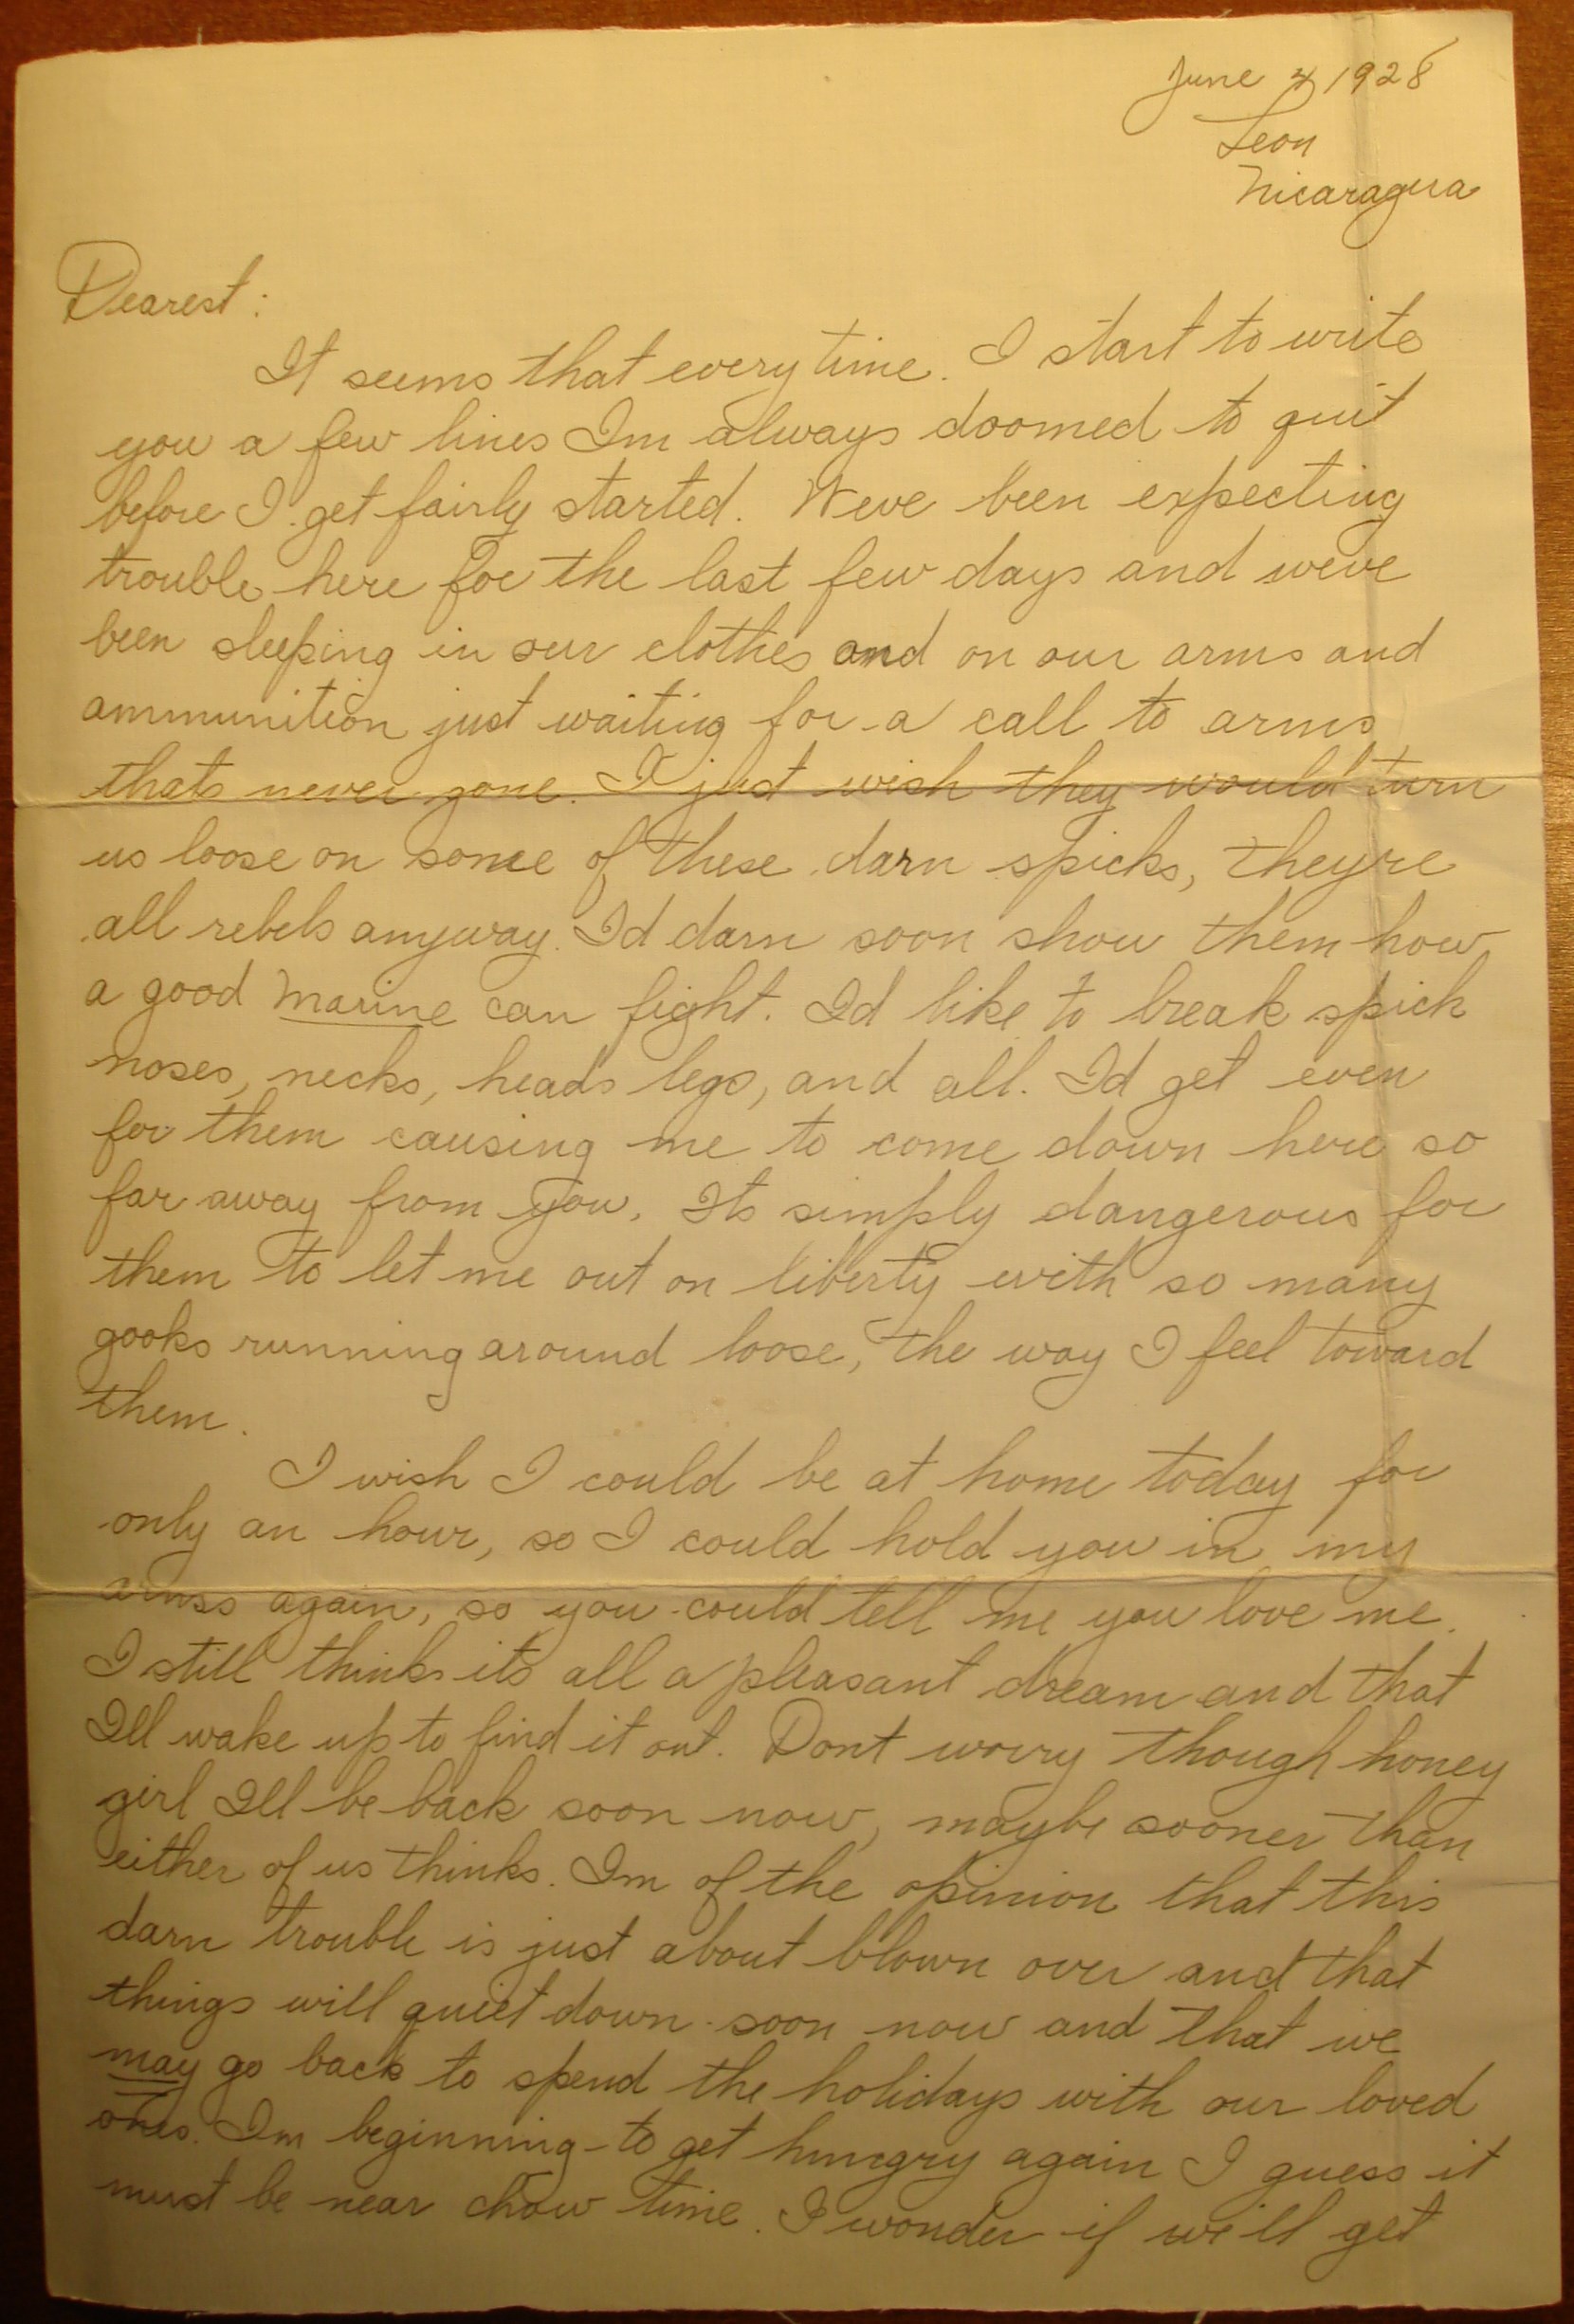 June 4, 1928
Leon
Nicaragua
Dearest:
It seems that every time. I start to write
you a few lines Im always doomed to quit
before I get fairly started. Weve been expecting
trouble here for the last few days and weve
been sleeping in our clothes and on our arms and
ammunition just waiting for a call to arms
thats never gone. I just wish they would turn
us loose on some of these darn spicks, theyre
all rebels anyway. Id darn soon show them how
a good marine can fight. Id like to break spick
noses, necks, heads legs, and all. Id get even
for them causing me to come down here so
far away from you. Its simply dangerous for
them to let me out on liberty with so many
gooks running around loose, the way I feel toward
them.
I wish I could be at home today for
only an hour, so I could hold you in my
arms again, so you could tell me you love me.
I still think its all a pleasant dream and that
Ill wake up to find it out. Dont worry though honey
girl Ill be back soon now, maybe sooner than
either of us thinks. Im of the opinion that this
darn trouble is just about blown over and that
things will quiet down soon now and that we
may go back to spend the holidays with our loved
ones. Im beginning to get hungry again I guess it
must be near chow time. I wonder if we'll get